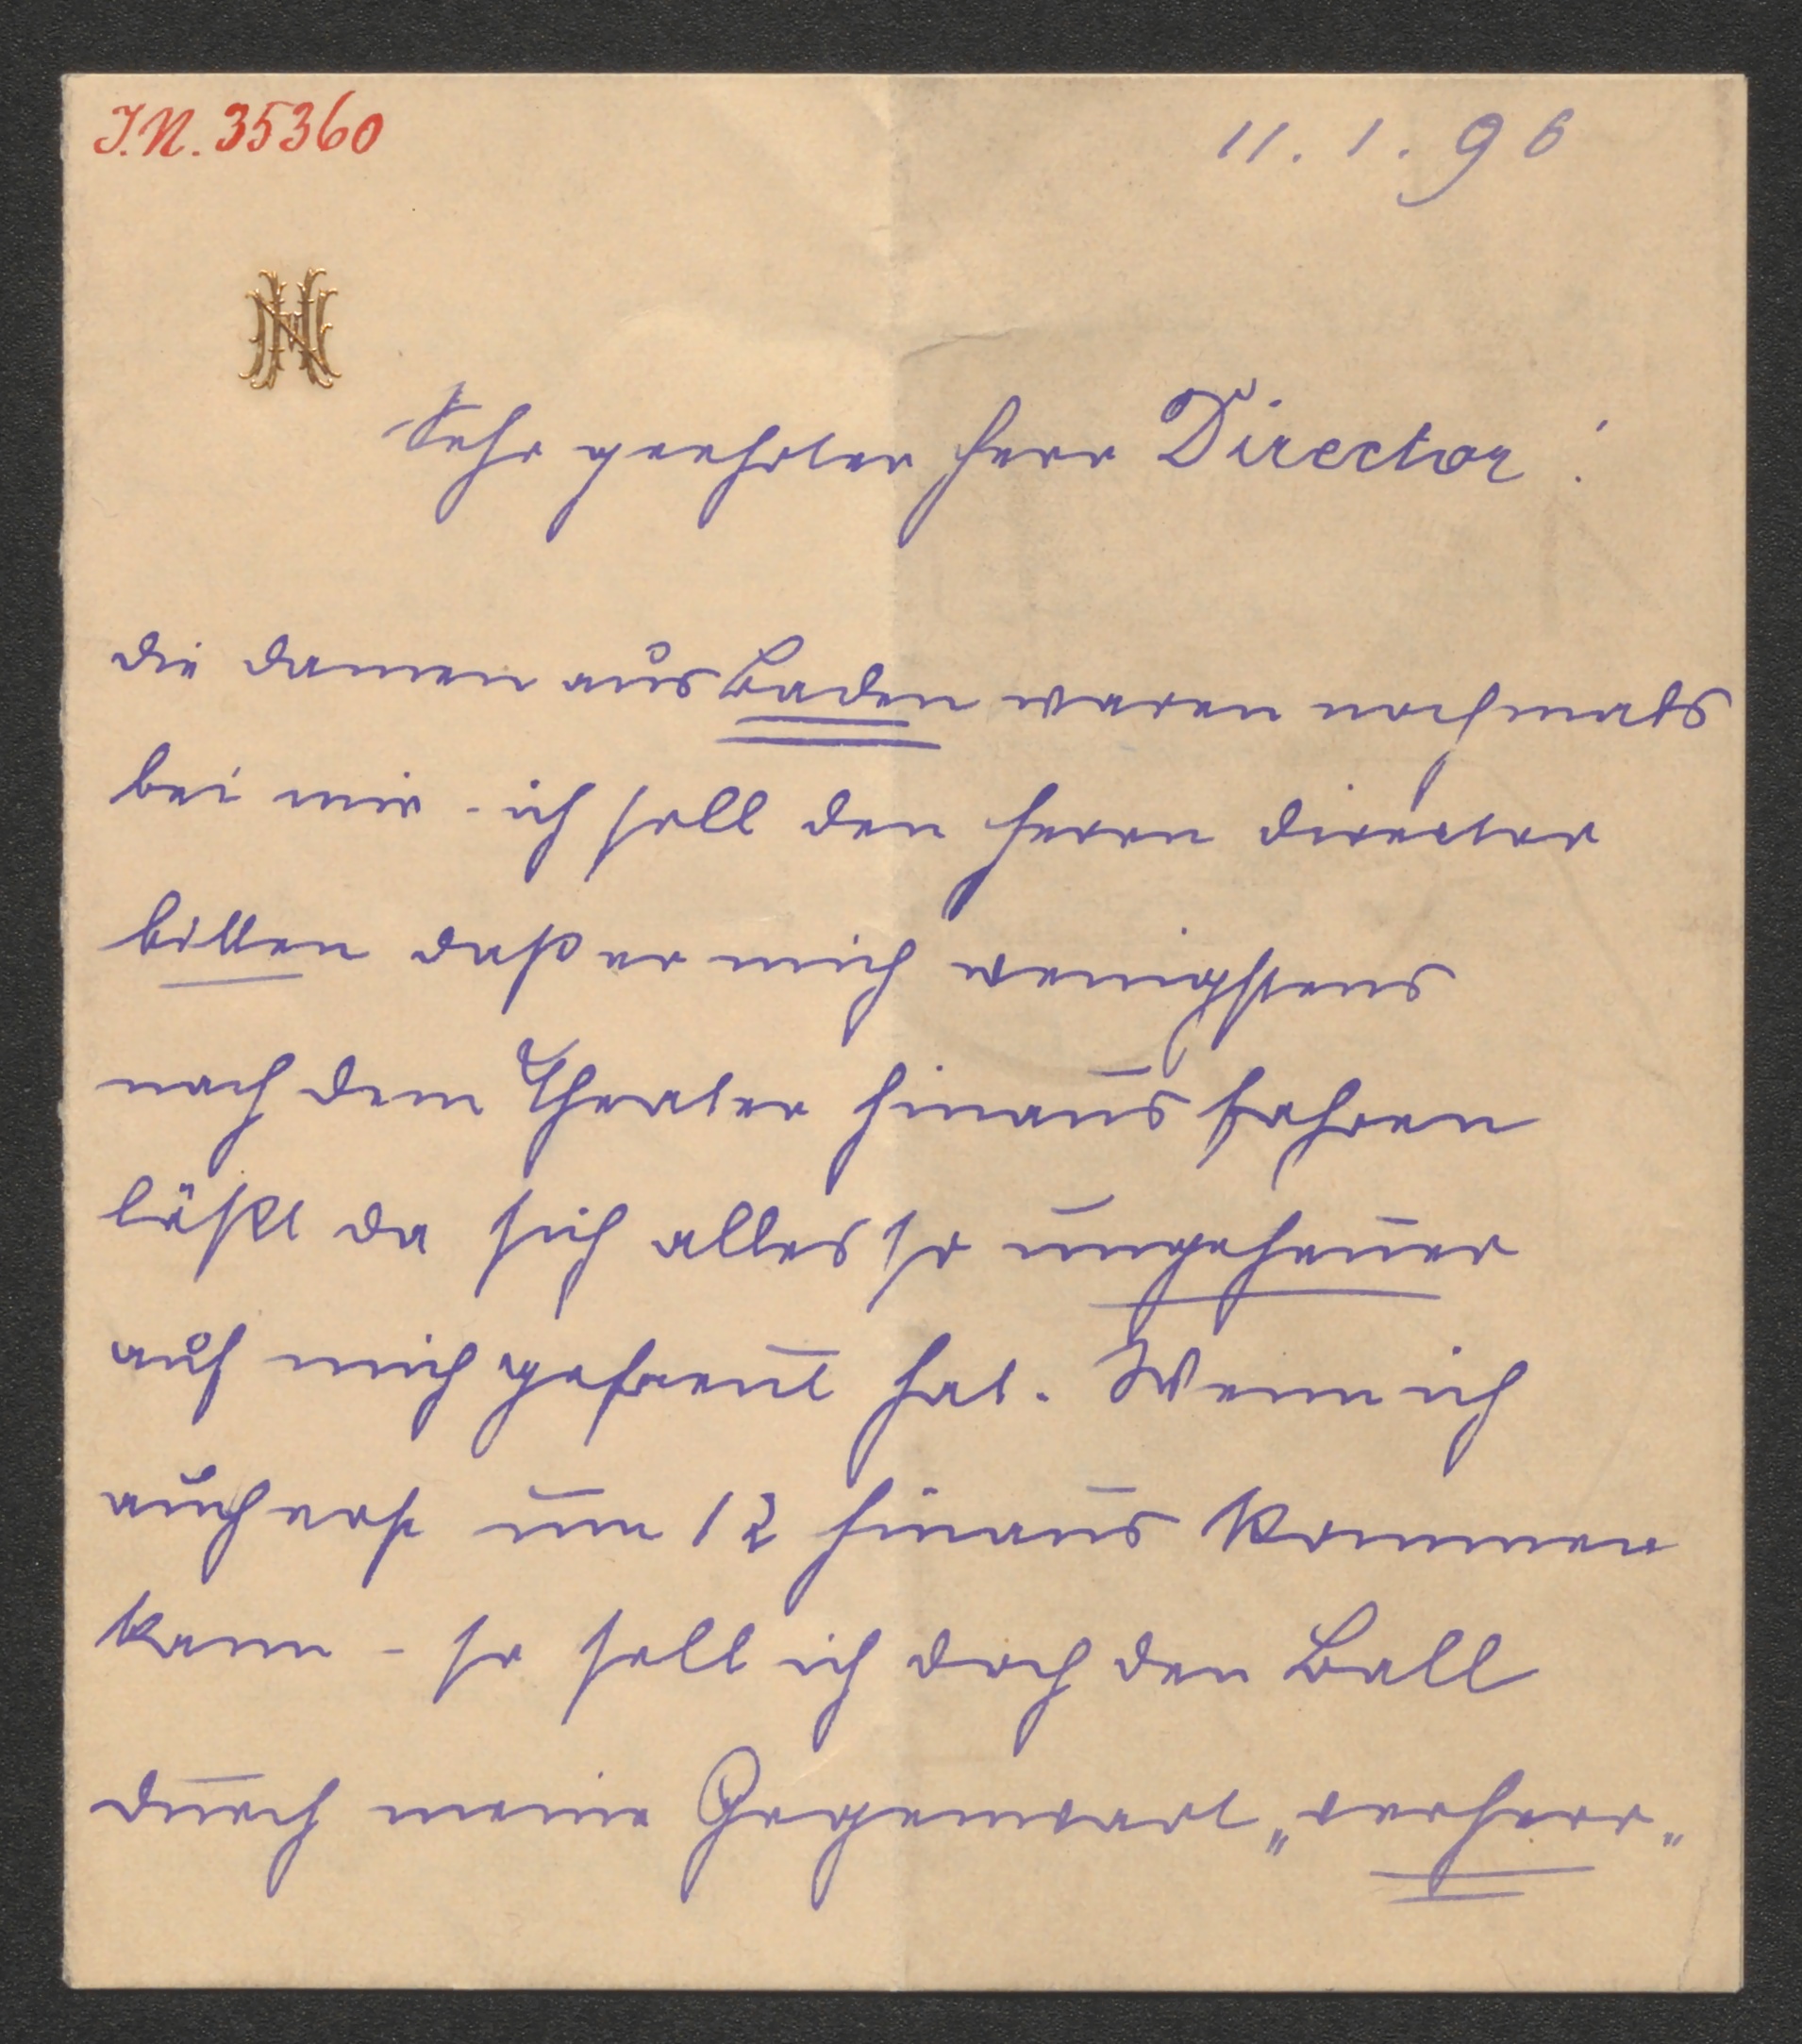 I.N. 35360
11.1.96
Sehr geehrter Herr Director!
die Damen aus Baden waren nochmals
bei mir - ich soll den Herrn Director
bitten daß er mich wenigstens
nach dem Theater hinaus fahren
läßt da sich alles so ungeheuer
auf mich gefreut hat. Wenn ich
auch erst um 12 hinaus kommen
kann - so soll ich doch den Ball
durch meine Gegenwart „verherr„